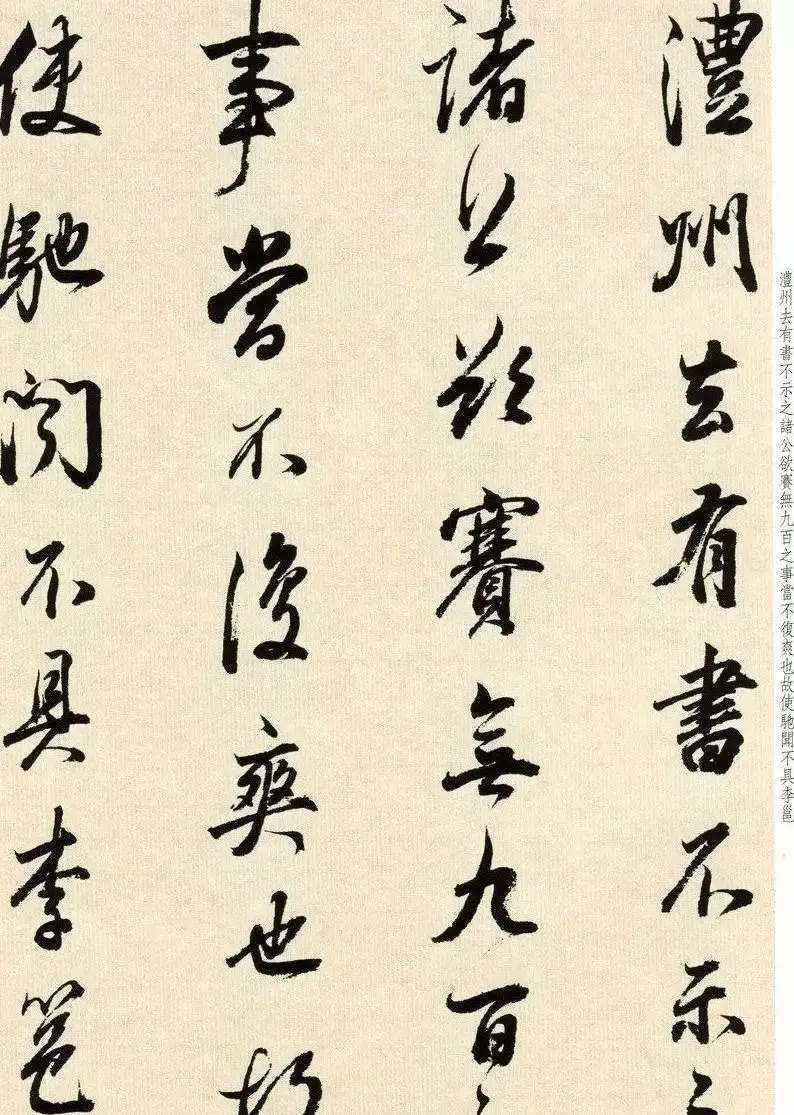 澧州去有書不示之
諸公欲賽無九百之
事當不復爽也故
使馳聞不具李邕
澧州去有書不示之諸公欲賽無九百之事當不復爽也故使馳聞不具李邕